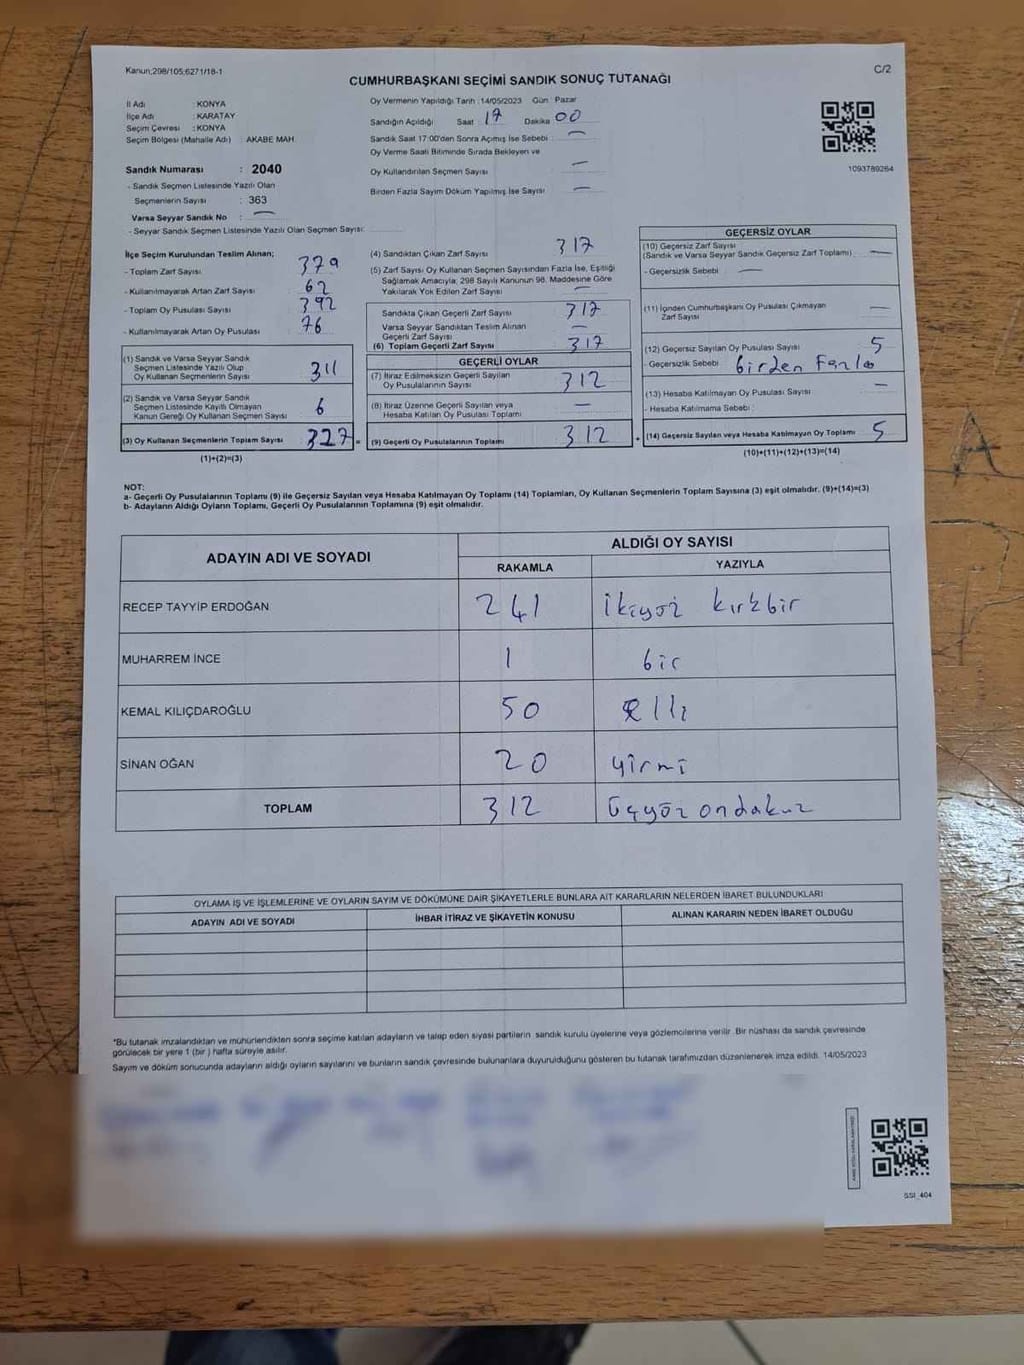 Kanun;298/105;6271/18-1
C/2
CUMHURBAŞKANI SEÇİMİ SANDIK SONUÇ TUTANAĞI
İl Adı : KONYA
İlçe Adı : KARATAY
Seçim Çevresi : KONYA
Seçim Bölgesi (Mahalle Adı) AKABE MAH.
Sandık Numarası : 2040
- Sandık Seçmen Listesinde Yazılı Olan
Seçmenlerin Sayısı : 363
Varsa Seyyar Sandık No : —
- Seyyar Sandık Seçmen Listesinde Yazılı Olan Seçmen Sayısı:
Oy Vermenin Yapıldığı Tarih :14/05/2023 Gün: Pazar
Sandığın Açıldığı Saat : 17 Dakika 00
Sandık Saat 17:00'den Sonra Açılmış İse Sebebi : —
Oy Verme Saati Bitiminde Sırada Bekleyen ve
Oy Kullandırılan Seçmen Sayısı —
Birden Fazla Sayım Döküm Yapılmış İse Sayısı —
1093789264
İlçe Seçim Kurulundan Teslim Alınan;
- Toplam Zarf Sayısı 379
- Kullanılmayarak Artan Zarf Sayısı 62
- Toplam Oy Pusulası Sayısı 392
- Kullanılmayarak Artan Oy Pusulası 76
(1) Sandık ve Varsa Seyyar Sandık
Seçmen Listesinde Yazılı Olup
Oy Kullanan Seçmenlerin Sayısı 311
(2) Sandık ve Varsa Seyyar Sandık
Seçmen Listesinde Kayıtlı Olmayan
Kanun Gereği Oy Kullanan Seçmen Sayısı 6
(3) Oy Kullanan Seçmenlerin Toplam Sayısı 327 =
(1)+(2)=(3)
(4) Sandıktan Çıkan Zarf Sayısı 317
(5) Zarf Sayısı Oy Kullanan Seçmen Sayısından Fazla İse, Eşitliği
Sağlamak Amacıyla; 298 Sayılı Kanunun 98. Maddesine Göre
Yakılarak Yok Edilen Zarf Sayısı —
Sandıkta Çıkan Geçerli Zarf Sayısı 317
Varsa Seyyar Sandıktan Teslim Alınan
Geçerli Zarf Sayısı —
(6) Toplam Geçerli Zarf Sayısı 317
GEÇERLİ OYLAR
(7) İtiraz Edilmeksizin Geçerli Sayılan
Oy Pusulalarının Sayısı 312
(8) İtiraz Üzerine Geçerli Sayılan veya
Hesaba Katılan Oy Pusulası Toplamı —
(9) Geçerli Oy Pusulalarının Toplamı 312 +
GEÇERSİZ OYLAR
(10) Geçersiz Zarf Sayısı
(Sandık ve Varsa Seyyar Sandık Geçersiz Zarf Toplamı) —
- Geçersizlik Sebebi : —
(11) İçinden Cumhurbaşkanı Oy Pusulası Çıkmayan
Zarf Sayısı —
(12) Geçersiz Sayılan Oy Pusulası Sayısı 5
- Geçersizlik Sebebi : birden Fazla
(13) Hesaba Katılmayan Oy Pusulası Sayısı —
- Hesaba Katılmama Sebebi :
(14) Geçersiz Sayılan veya Hesaba Katılmayan Oy Toplamı 5
(10)+(11)+(12)+(13)=(14)
NOT:
a- Geçerli Oy Pusulalarının Toplamı (9) ile Geçersiz Sayılan veya Hesaba Katılmayan Oy Toplamı (14) Toplamları, Oy Kullanan Seçmenlerin Toplam Sayısına (3) eşit olmalıdır. (9)+(14)=(3)
b- Adayların Aldığı Oyların Toplamı, Geçerli Oy Pusulalarının Toplamına (9) eşit olmalıdır.
ADAYIN ADI VE SOYADI
ALDIĞI OY SAYISI
RAKAMLA YAZIYLA
RECEP TAYYİP ERDOĞAN 241 ikiyüz kırkbir
MUHARREM İNCE 1 bir
KEMAL KILIÇDAROĞLU 50 elli
SİNAN OĞAN 20 yirmi
TOPLAM 312 Üçyüz ondakuz
OYLAMA İŞ VE İŞLEMLERİNE VE OYLARIN SAYIM VE DÖKÜMÜNE DAİR ŞİKAYETLERLE BUNLARA AİT KARARLARIN NELERDEN İBARET BULUNDUKLARI
ADAYIN ADI VE SOYADI İHBAR İTİRAZ VE ŞİKAYETİN KONUSU ALINAN KARARIN NEDEN İBARET OLDUĞU
*Bu tutanak imzalandıktan ve mühürlendikten sonra seçime katılan adayların ve talep eden siyasi partilerin sandık kurulu üyelerine veya gözlemcilerine verilir. Bir nüshası da sandık çevresinde
görülecek bir yere 1 (bir) hafta süreyle asılır.
Sayım ve döküm sonucunda adayların aldığı oyların sayılarını ve bunların sandık çevresinde bulunanlara duyurulduğunu gösteren bu tutanak tarafımızdan düzenlenerek imza edildi. 14/05/2023
SSI_404